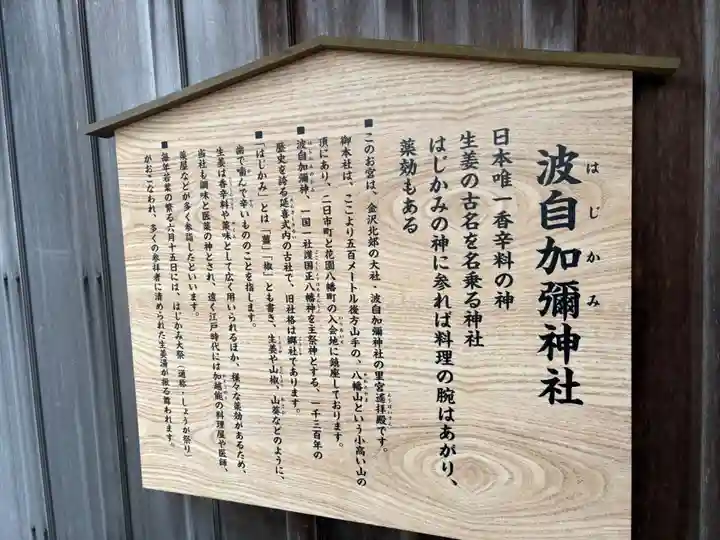 はじかみ
波自加彌神社
日本唯一香辛料の神
生姜の古名を名乗る神社
はじかみの神に参れば料理の腕はあがり、
薬効もある
■このお宮は、金沢北郊の大社・波自加彌神社の里宮遙拝殿です。
御本社は、ここより五百メートル後方山手の、八幡山という小高い山の
頂にあり、二日市町と花園八幡町の入会地に鎮座しております。
■波自加彌神、一国一社護国正八幡神を主祭神とする、一千三百年の
歴史を誇る延喜式内の古社で、旧社格は郷社であります。
■「はじかみ」とは「薑」「椒」とも書き、生姜や山椒、山葵などのように、
歯で噛んで辛いもののことを指します。
生姜は香辛料や薬味として広く用いられるほか、様々な薬効があるため、
当社も調味と医薬の神とされ、遠く江戸時代には加越能の料理屋や医師、
薬屋などが多く参詣したといいます。
■毎年若葉の繁る六月十五日には、はじかみ大祭（通称・しょうが祭り）
がおこなわれ、多くの参拝者に清められた生姜湯が振る舞われます。